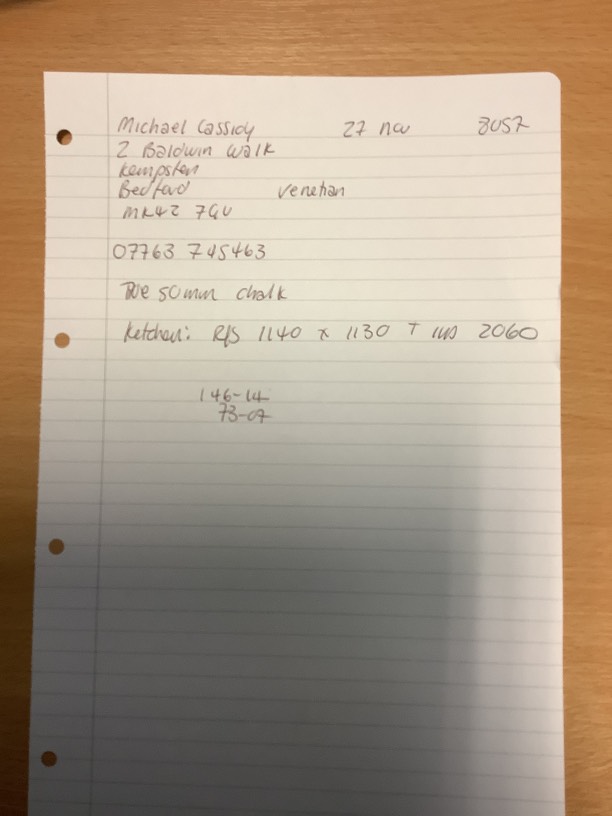 Michael Cassidy 27 nov 3057
2 Baldwin Walk
Kempston
Bedford venetian
MK42 7GU
07763 745463
50mm chalk
Kitchen: R/S 1140 x 1130 T 2060
146-14
73-07